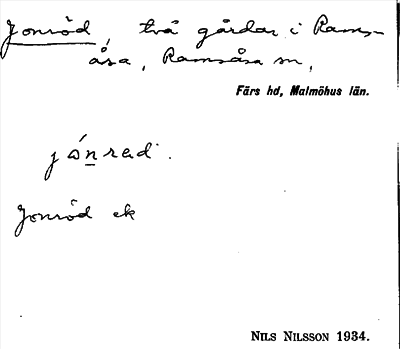 Jonröd, två gårdar i Rams-
åsa, Ramsåsa sn,
Färs hd, Malmöhus län.
jónrad.
Jonröd ek
NILS NILSSON 1934.